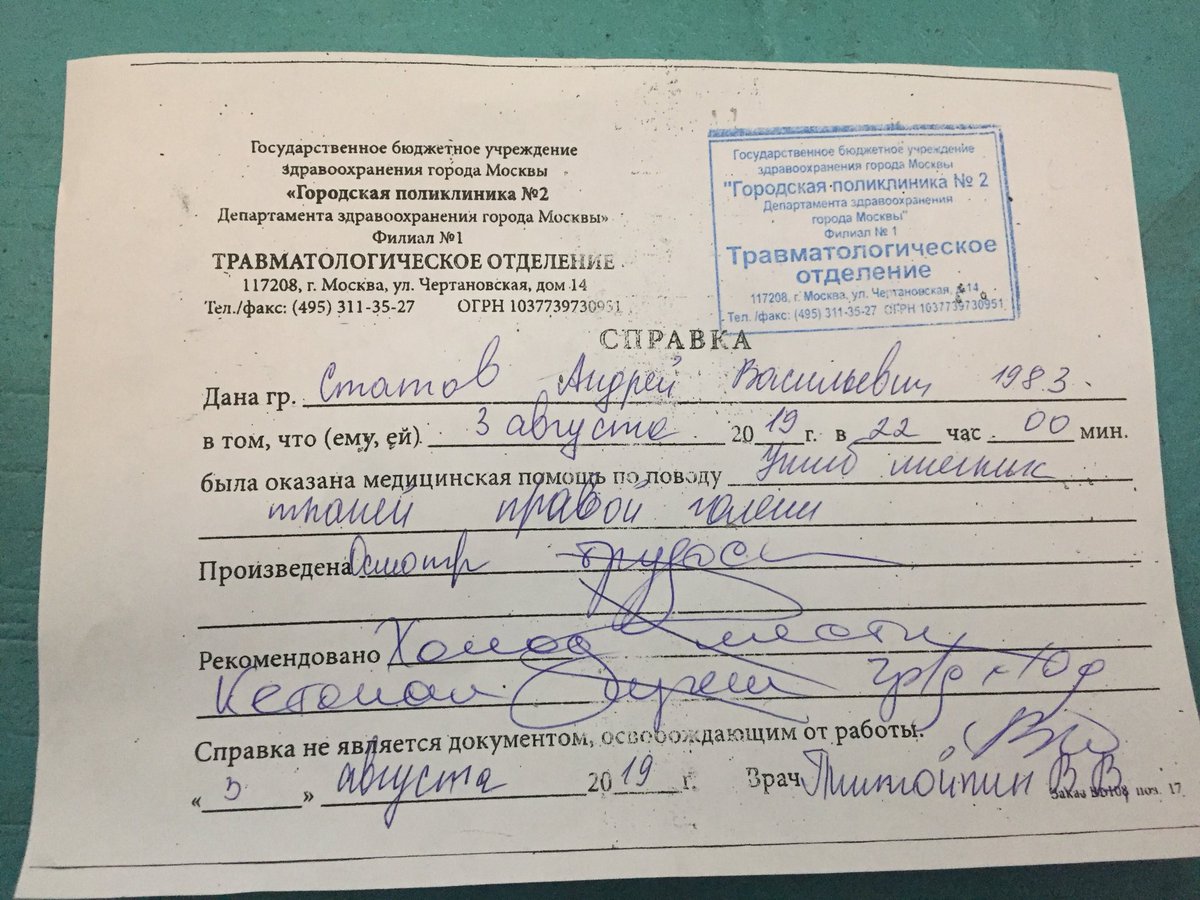 Государственное бюджетное учреждение
здравоохранения города Москвы
«Городская поликлиника №2
Департамента здравоохранения города Москвы»
Филиал №1
ТРАВМАТОЛОГИЧЕСКОЕ ОТДЕЛЕНИЕ
117208, г. Москва, ул. Чертановская, дом 14
Тел./факс: (495) 311-35-27 ОГРН 1037739730951
Государственное бюджетное учреждение
здравоохранения города Москвы
"Городская поликлиника № 2
Департамента здравоохранения
города Москвы"
Филиал № 1
Травматологическое
отделение
117208, г. Москва, ул. Чертановская, д.14
Тел./факс: (495) 311-35-27 ОГРН 1037739730951
СПРАВКА
Дана гр. Статов Андрей Васильевич 1983
в том, что (ему, ей) 3 августа 2019 г. в 22 час 00 мин.
была оказана медицинская помощь по поводу Ушиб мягких
тканей правой голени
Произведена Осмотр
Рекомендовано Холод мести
Кетонал
Справка не является документом, освобождающим от работы.
«3» августа 2019 г. Врач В.В.
Заказ №5108 поз. 17